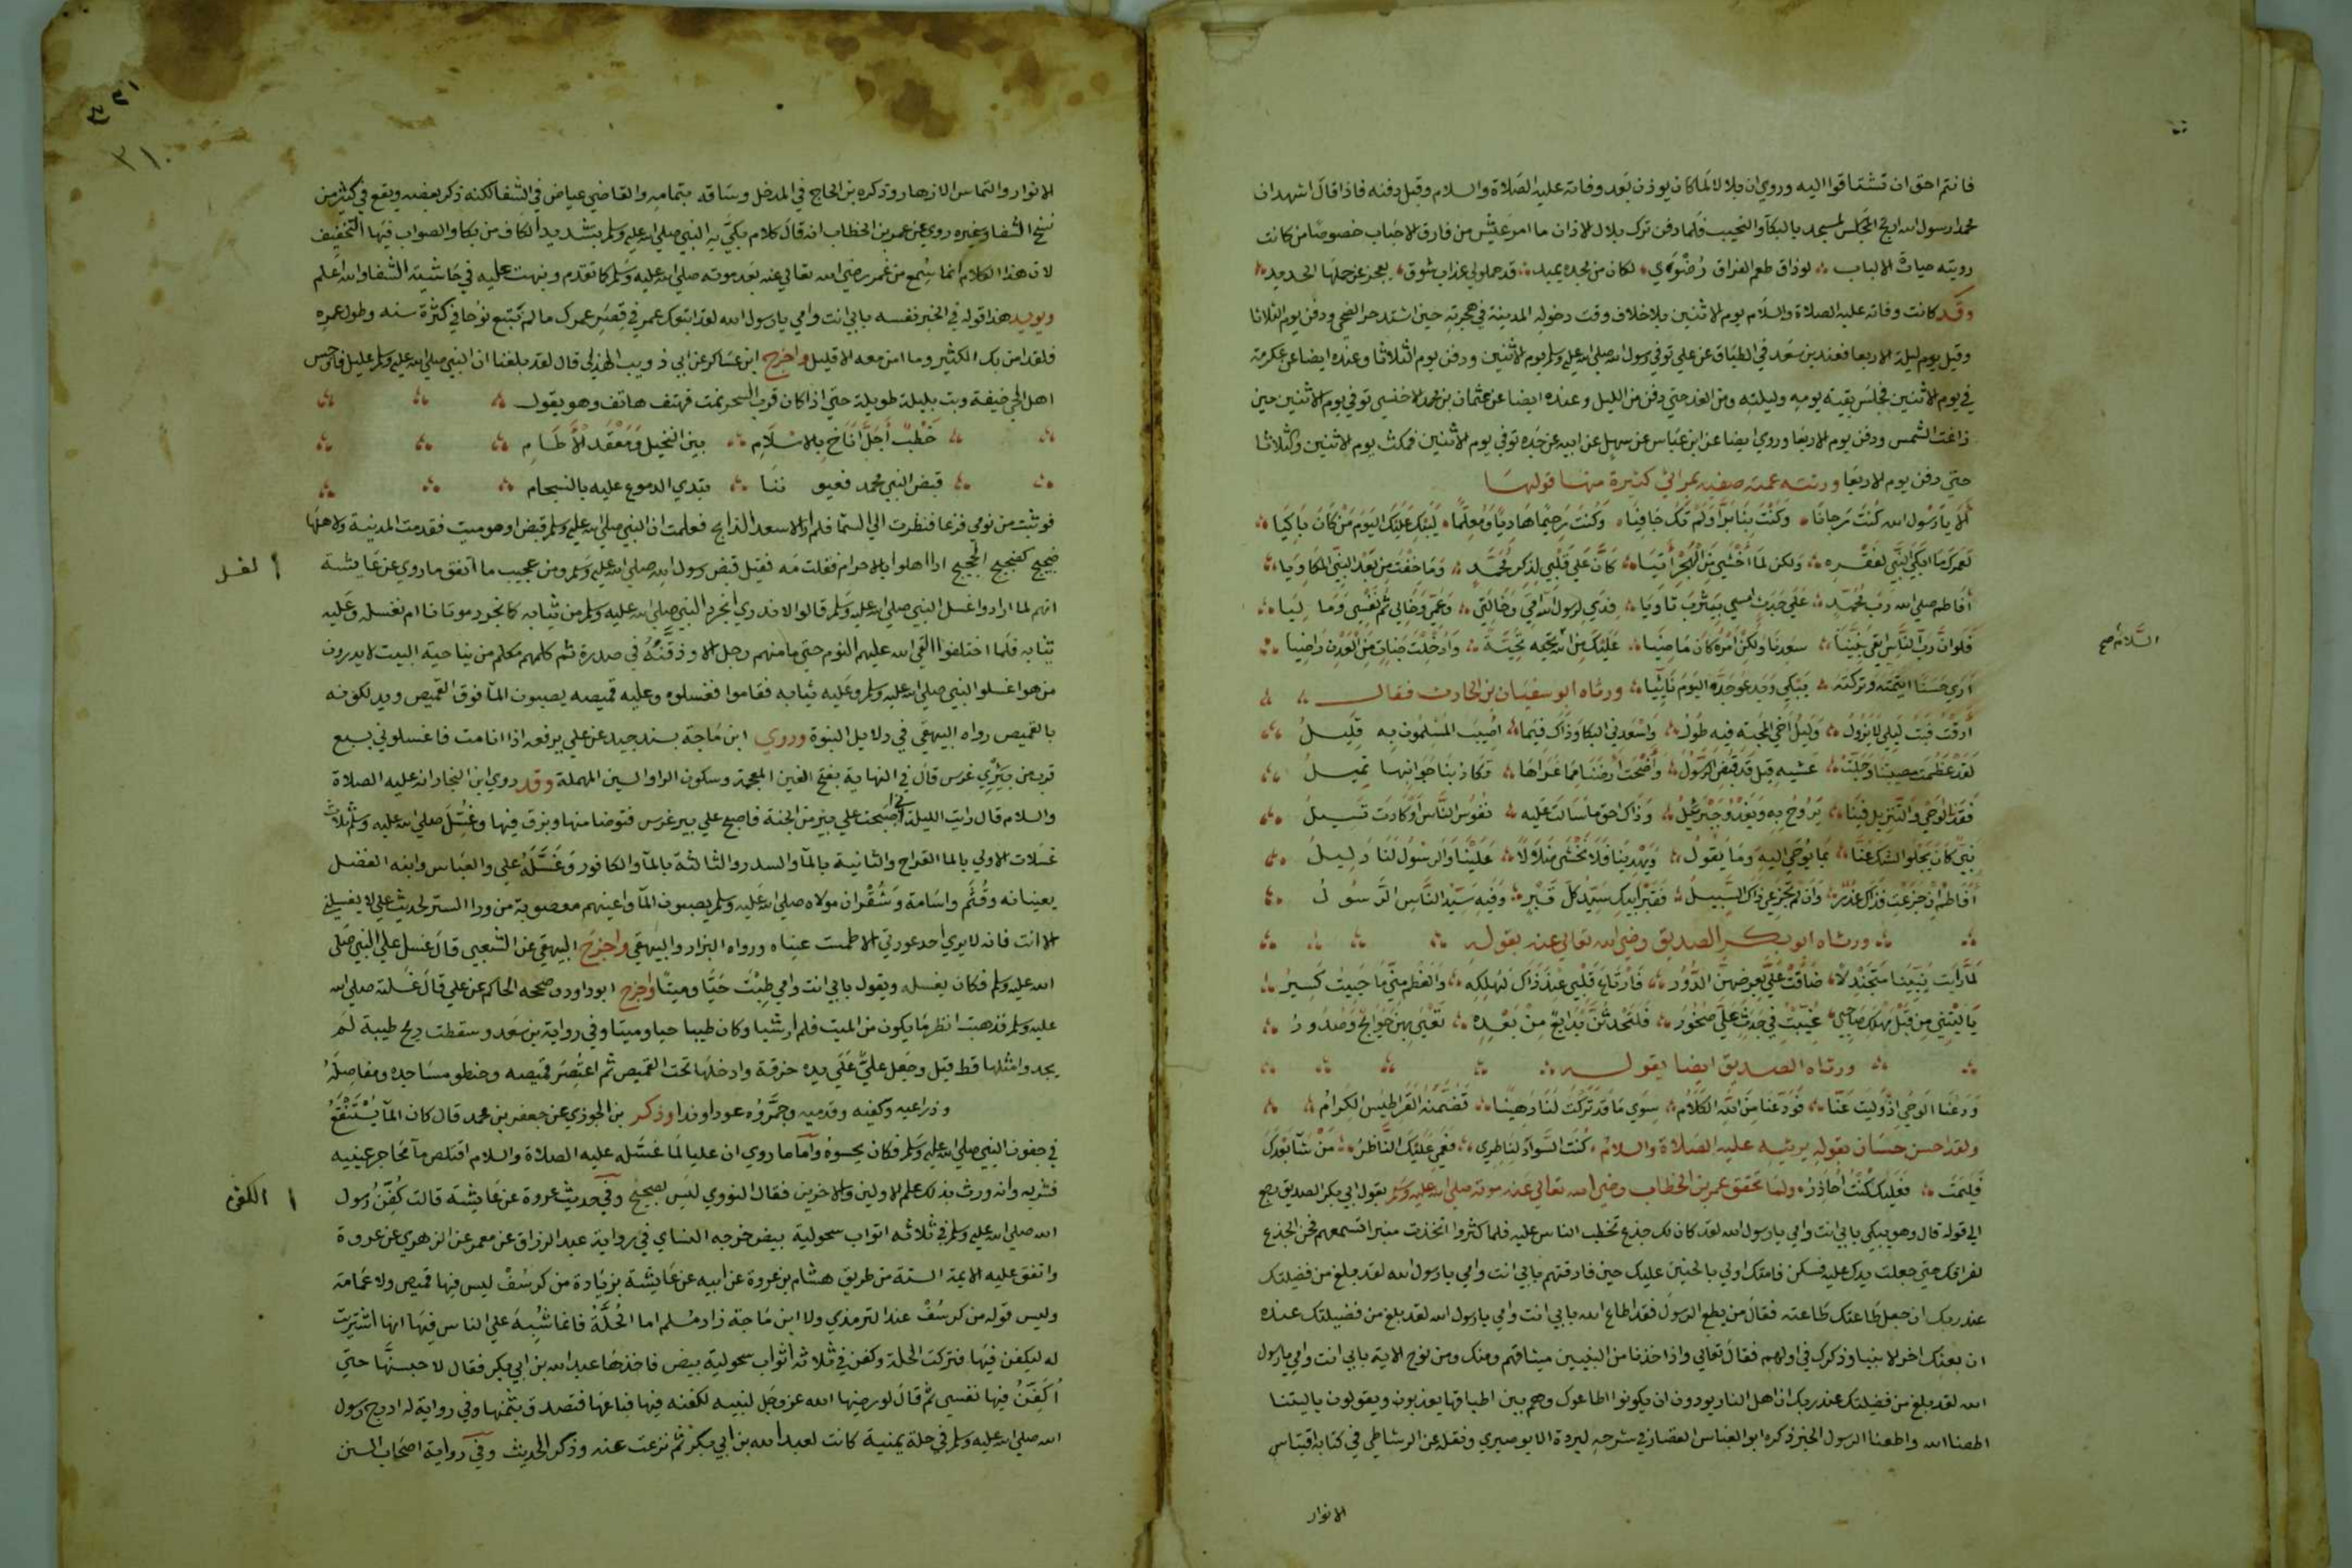 فانتم احق ان تشتاقوا اليه وروي ان بلالا لما كان يوذن بعد وفاته عليه الصلاة والسلام وقبل دفنه فاذا قال اشهد ان
محمدا رسول الله ارتج المسجد بالبكآ والنحيب فلما دفن ترك بلال الاذان ما امر عيش من فارق الاحباب خصوصا من كانت
رويته حياة الالباب لوذاق طعم الفراق رضوي لكان من وجده يميد قد حملوني عذاب شوق يعجز عن حملها الحديد
وقد كانت وفاته عليه الصلاة والسلام يوم الاثنين بلا خلاف وقت دخوله المدينة في هجرته حين اشتد حر الضحي ودفن يوم الثلاثا
وقيل يوم ليلة الاربعا فعند بن سعد في الطبقات عن علي توفي رسول الله صلي الله عليه وسلم يوم الاثنين ودفن يوم الثلاثا وعنده ايضا عن عكرمة
في يوم الاثنين فجلس بقية يومه وليلته ومن الغد حتي دفن من الليل وعنده ايضا عن عثمان بن محمد الاخنسي توفي يوم الاثنين حين
زاغت الشمس ودفن يوم الاربعا وروي ايضا عن ابن عباس عن سهل عن ابيه عن جده توفي يوم الاثنين فمكث يوم الاثنين والثلاثا
حتي دفن يوم الاربعا ورثته عمته صفيه بمراثي كثيرة منها قولها
الا يا رسول الله كنت رجانا وكنت بنا برا ولم تك جافيا وكنت رحيما هاديا ومعلما ليبك عليك اليوم من كان باكيا
لعمرك ما ابكي النبي لفقده ولكن لما اخشي من الهجر آتيا كان علي قلبي لذكر محمد وما خفت من بعد النبي المكاويا
أفاطم صلي الله رب محمد علي جدث امسي بيثرب ثاويا فدي لرسول الله امي وخالتي وعمي وخالي ثم نفسي وما ليا
فلو ان رب الناس ابقي نبينا سعدنا ولكن امره كان ماضيا عليك من الله تحية وادخلت جنات من العدن راضيا
السلام صح
أري حسنا ايتمته وتركته يبكي ويدعو جده اليوم نائيا ورثاه ابو سفيان بن الحارث فقال
أرقت فبت ليلي لا يزول وليل اخي المصيبة فيه طول واسعدني البكا وذاك فيما اصيب المسلمون به قليل
لقد عظمت مصيبتنا وجلت عشيه قيل قد قبض الرسول وأضحت ارضنا مما عراها تكاد بنا جوانبها تميل
فقدنا الوحي والتنزيل فينا يروح به ويغدو جبرئيل وذاك احق ما سالت عليه نفوس الناس او كادت تسيل
نبي كان يجلوا الشك عنا بما يوحي اليه وما يقول ويهدينا فلا نخشي ضلالا علينا والرسول لنا دليل
أفاطم ان جزعت فذاك عذر وان لم تجزعي ذاك السبيل فقبر ابيك سيد كل قبر وفيه سيد الناس الرسول
ورثاه ابو بكر الصديق رضي الله تعالي عنه يقول
لما رايت نبينا متجندلا ضاقت علي بعرضهن الدور فارتاع قلبي عند ذاك لهلكه والعظم مني ما حييت كسير
يا ليتني من قبل مهلك صاحبي غيبت في جدث علي صخور فلتحدثن بدايع من بعده تعني بهن جوانح وصدور
ورثاه الصديق ايضا يقول
ودعنا الوحي اذ وليت عنا فودعنا من الله الكلام سوي ما قد تركت لنا رهينا تضمنه القراطيس الكرام
ولقد احسن حسان بقوله يرثيه عليه الصلاة والسلام كنت السواد لناظري فعمي عليك الناظر من شآ بعدك
فليمت فعليك كنت أحاذر ولما تحقق عمر بن الخطاب رضي الله تعالي عنه موته صلي الله عليه وسلم بقول ابي بكر الصديق رجع
الي قوله قال وهو يبكي بابي انت وامي يا رسول الله لقد كان لك جذع تخطب الناس عليه فلما كثروا اتخذت منبرا لتسمعهم فحن الجذع
لفراقك حتي جعلت يدك عليه فسكن فامتك اولي بالحنين عليك حين فارقتهم بابي انت وامي يا رسول الله لقد بلغ من فضيلتك
عند ربك ان جعل طاعتك طاعته فقال من يطع الرسول فقد اطاع الله بابي انت وامي يا رسول الله لقد بلغ من فضيلتك عنده
ان بعثك اخر الانبيا وذكرك في اولهم فقال تعالي واذ اخذنا من النبيين ميثاقهم ومنك ومن نوح الاية بابي انت وامي يا رسول
الله لقد بلغ من فضيلتك عند ربك ان اهل النار يودون ان يكونوا اطاعوك وهم بين اطباقها يعذبون ويقولون ياليتنا
اطعنا الله واطعنا الرسول الخبر ذكره ابو العباس القصار في شرحه لبردة الابوصيري ونقله عن الرشاطي في كتابه اقتباس
الانوار
الانوار والتماس الازهار وذكره بن الحاج في المدخل وساقه بتمامه والقاضي عياض في الشفا لكنه ذكر بعضه ويقع في كثير من
نسخ الشفا وغيره روي عن عمر بن الخطاب انه قال كلام بكي به النبي صلي الله عليه وسلم بتشديد الكاف من بكا والصواب فيها التخفيف
لان هذا الكلام انما سمع من عمر رضي الله تعالي عنه بعد موته صلي الله عليه وسلم كما تقدم ونبهت عليه في حاشية الشفا والله اعلم
ويويد هذا قوله في الخبر نفسه بابي انت وامي يا رسول الله لقد اتبعك عمر في قصر عمرك ما لم يتبع نوحا في كثرة سنه وطول عمره
فلقد امن بك الكثير وما امن معه الا قليل واخرج ابن عساكر عن ابي ذويب الهذلي قال لقد بلغنا ان النبي صلي الله عليه وسلم عليل فاوجس
اهل الحي خيفة وبت بليلة طويلة حتي اذا كان قرب السحر نمت فهتف هاتف وهو يقول
خطب أجل اناخ بالاسلام بين النخيل ومعقد الأطام
قبض النبي محمد فعيوننا تبدي الدموع عليه بالتسجام
فوثبت من نومي فزعا فنظرت الي السما فلم ار الا سعد الذابح فعلمت ان النبي صلي الله عليه وسلم قبض او هو ميت فقدمت المدينة ولاهلها
ضجيج كضجيج الحجيج اذا اهلوا بالاحرام فقلت مه فقيل قبض رسول الله صلي الله عليه وسلم ومن عجيب ما اتفق ما روي عن عايشة
انهم لما ارادوا غسل النبي صلي الله عليه وسلم قالوا لا ندري انجرد النبي صلي الله عليه وسلم من ثيابه كما نجرد موتانا ام نغسله وعليه
ثيابه فلما اختلفوا القي الله عليهم النوم حتي ما منهم رجل الا وذقنه في صدره ثم كلمهم مكلم من ناحية البيت لا يدرون
من هو اغسلوا النبي صلي الله عليه وسلم وعليه ثيابه فقاموا فغسلوه وعليه قميصه يصبون المآ فوق القميص ويدلكونه
بالقميص رواه البيهقي في دلايل النبوة وروي ابن ماجة بسند جيد عن علي يرفعه اذا انا مت فاغسلوني بسبع
قرب من بيري غرس قال في النهاية بفتح الغين المعجمة وسكون الرا والسين المهملة وقد روي ابن النجار انه عليه الصلاة
والسلام قال رايت الليلة اني اصبحت علي بير من الجنة فاصبح علي بير غرس فتوضا منها وبزق فيها وغسل صلي الله عليه وسلم ثلاث
غسلات الاولي بالما القراح والثانية بالمآ والسدر والثالثة بالمآ والكافور وغسله علي والعباس وابنه الفضل
يعينانه وقثم واسامة وشقران مولاه صلي الله عليه وسلم يصبون المآ واعينهم معصوبة من ورا الستر لحديث علي لا يغسلني
الا انت فانه لا يري احد عورتي الا طمست عيناه ورواه البزار والبيهقي واخرج البيهقي عن الشعبي قال غسل علي النبي صلي
الله عليه وسلم فكان يغسله ويقول بابي انت وامي طبت حيا وميتا واخرج ابو داود وصححه الحاكم عن علي قال غسلته صلي الله
عليه وسلم فذهبت انظر ما يكون من الميت فلم ار شيا وكان طيبا حيا وميتا وفي رواية بن سعد وسقطت ريح طيبة لم
يجدوا مثلها قط قيل وجعل علي علي يده خرقة وادخلها تحت القميص ثم اعتصر قميصه وحنطو مساجده ومفاصله
وذراعيه وكفيه وقدميه وجمروه عودا وندا وذكر بن الجوزي عن جعفر بن محمد قال كان المآ يستنقع
في جفون النبي صلي الله عليه وسلم فكان يحسوه وأما ما روي ان عليا لما غسله عليه الصلاة والسلام اقتلص مآ محاجر عينيه
فشربه وانه ورث بذلك علم الاولين والاخرين فقال النووي ليس بصحيح وفي حديث عروة عن عايشة قالت كفن رسول
الكفن
الله صلي الله عليه وسلم في ثلاثه اثواب سحولية بيض خرجه النساي في رواية عبد الرزاق عن معمر عن الزهري عن عروة
واتفق عليه الايمة الستة من طريق هشام بن عروة عن ابيه عن عايشة بزيادة من كرسف ليس فيها قميص ولا عمامة
وليس قوله من كرسف عند الترمذي ولا ابن ماجة زاد مسلم اما الحلة فانما شبه علي الناس فيها انها اشتريت
له ليكفن فيها فتركت الحلة وكفن في ثلاثه اثواب سحولية بيض فاخذها عبد الله بن ابي بكر فقال لاحبسنها حتي
أكفن فيها نفسي ثم قال لو رضيها الله عز وجل لنبيه لكفنه فيها فباعها فتصدق بثمنها وفي رواية له ادرج رسول
الله صلي الله عليه وسلم في حلة يمنية كانت لعبد الله بن ابي بكر ثم نزعت عنه وذكر الحديث وفي رواية اصحاب السنن